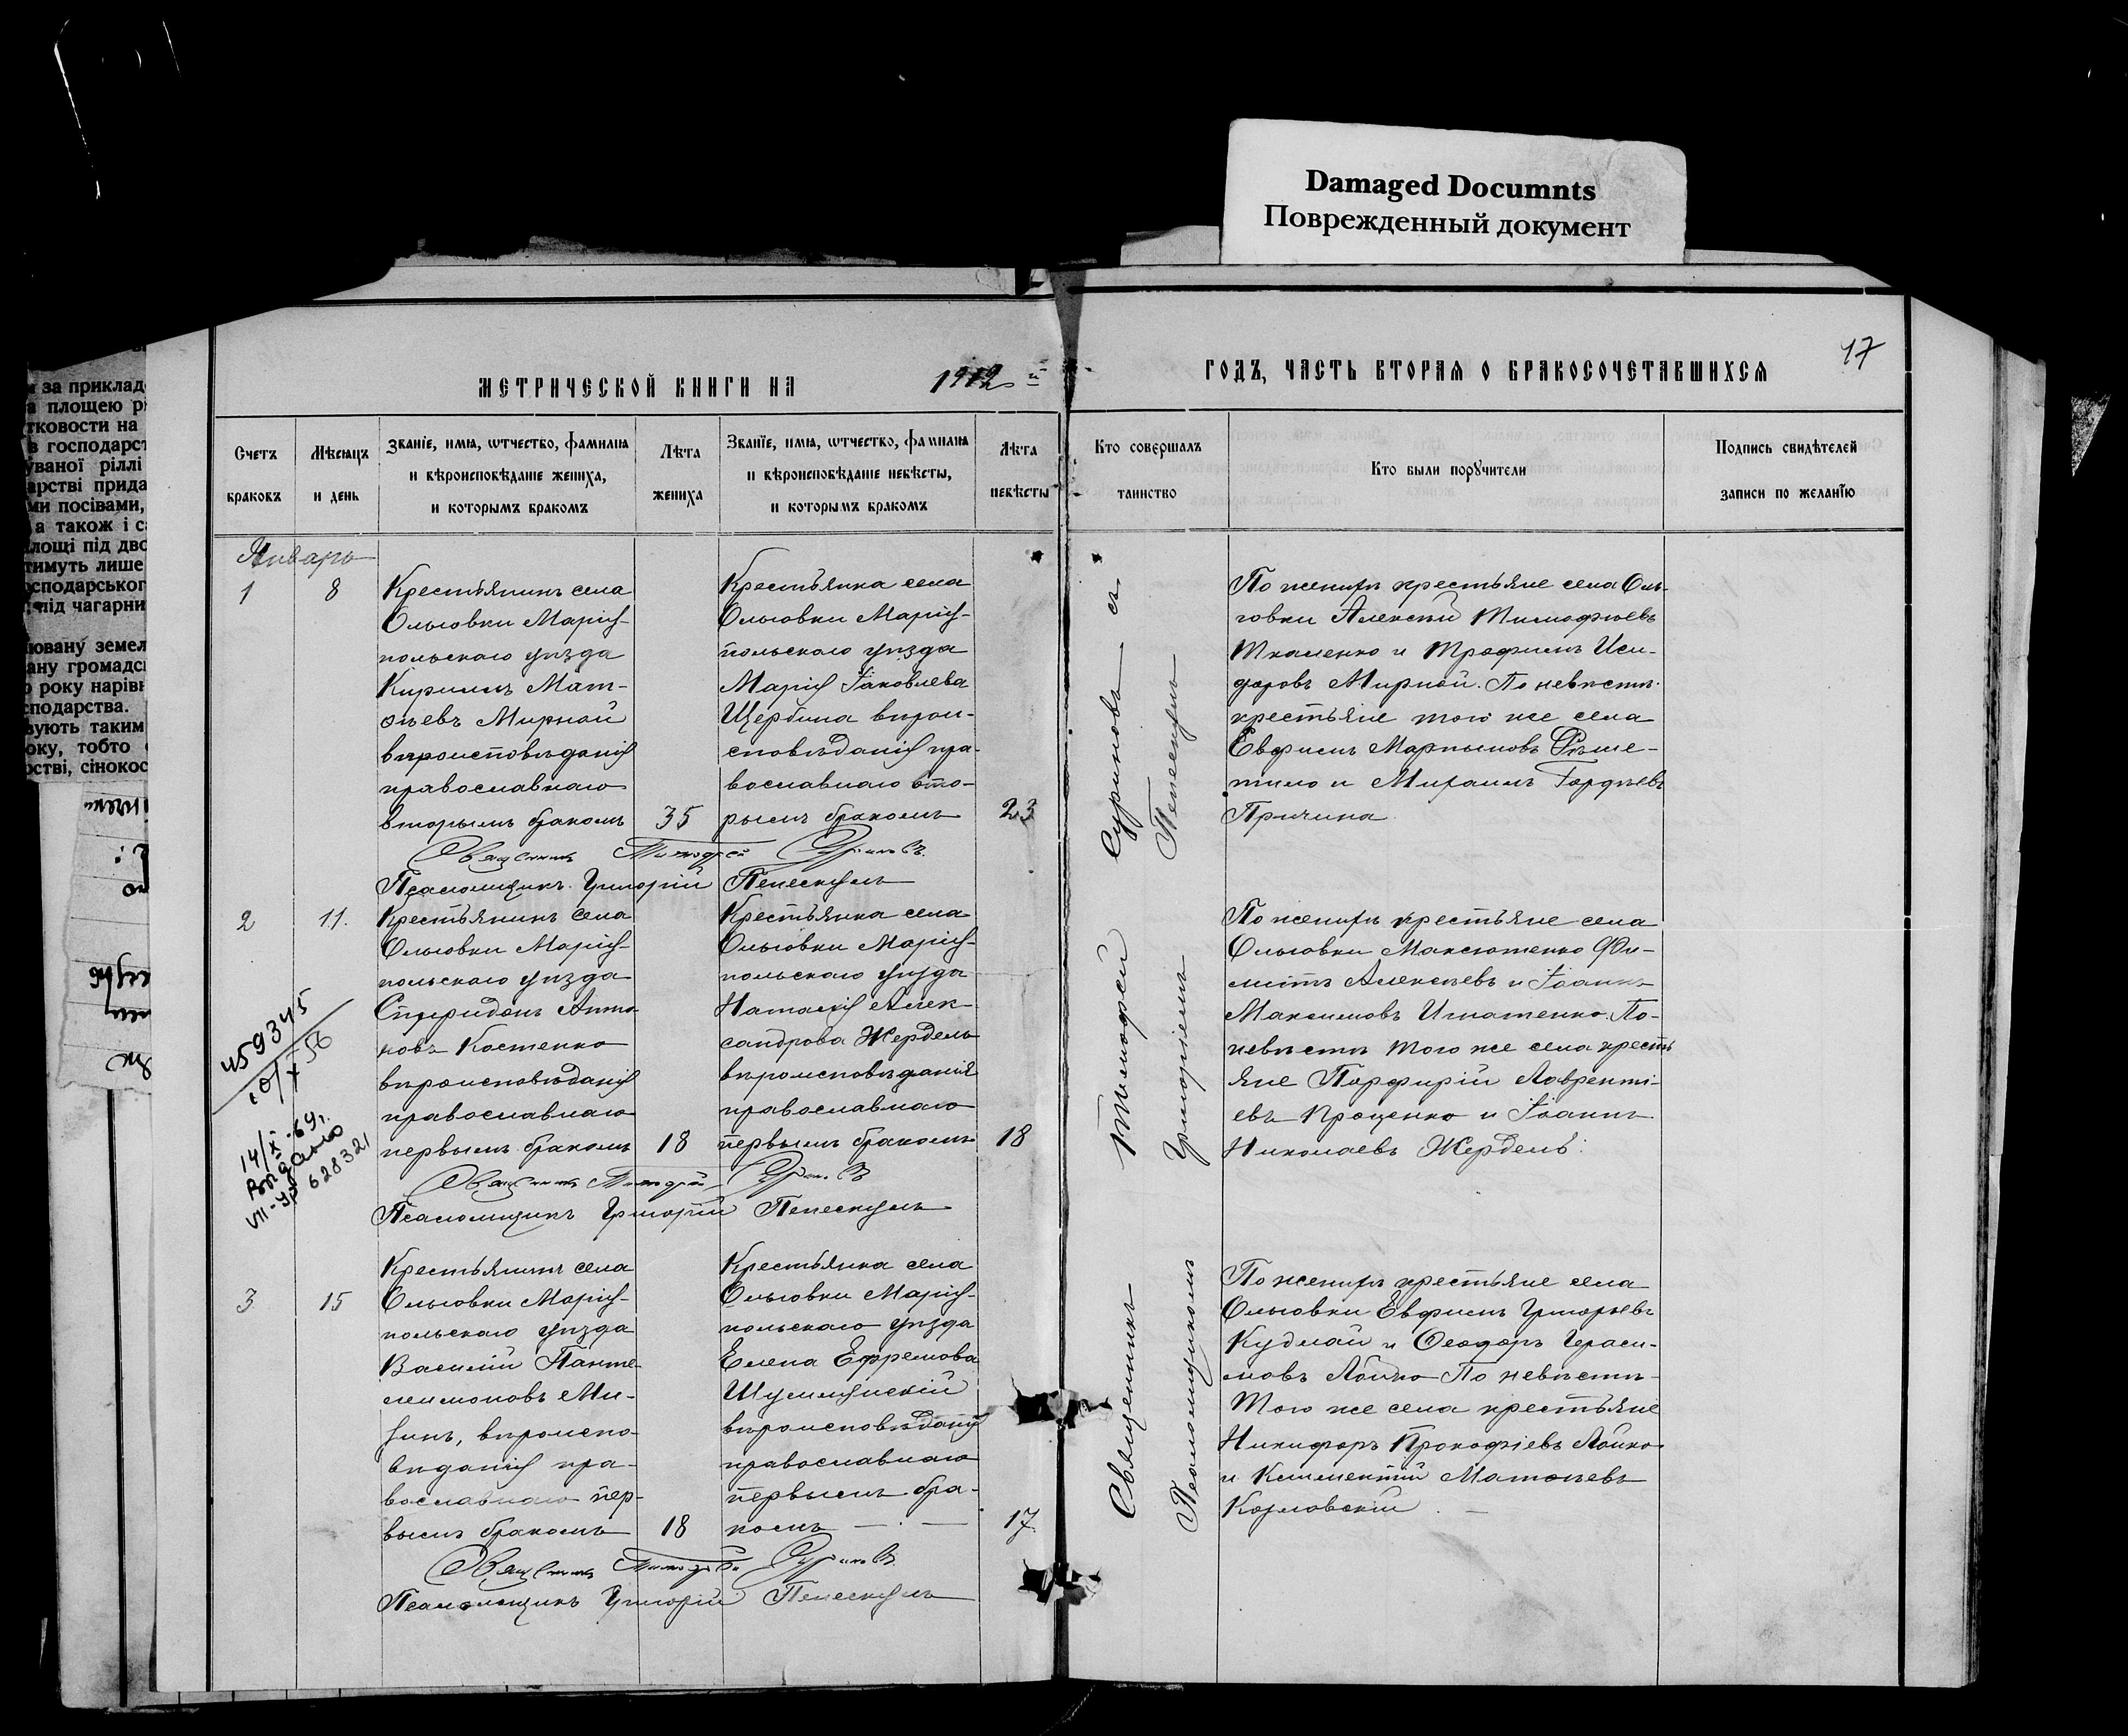 Damaged Documnts
Поврежденный документ
17
МЕТРИЧЕСКОЙ КНИГИ НА 1912 й
ГОДЪ, ЧАСТЬ ВТОРАЯ О БРАКОСОЧЕТАВШИХСЯ
Счетъ браковъ
Мѣсяцъ и день
Званіе, имя, отчество, фамилія и вѣроисповѣданіе жениха, и которымъ бракомъ
Лѣта жениха
Званїе, имя, отчество, фамилія и вѣроисповѣданіе невѣсты, и которымъ бракомъ
Лѣта невѣсты
Кто совершалъ таинство
Кто были поручители
Подпись свидѣтелей записи по желанїю
Январь
1
8
Крестьянинъ села
Ольговки Маріу-
польскаго уѣзда
Кириллъ Мат-
ѳеевъ Мирной
вѣроисповѣданія
православнаго
вторымъ бракомъ
35
Крестьянка села
Ольговки Маріу-
польскаго уѣзда
Марія Іаковлева
Щербина вѣрои-
сповѣданія пра-
вославнаго вто-
рымъ бракомъ
23
По женихѣ крестьяне села Оль-
говки Алексѣй Тимофѣевъ
Ткаченко и Трофимъ Иси-
доровъ Мирной. По невѣстѣ
крестьяне того же села
Евфимъ Мартыновъ Рѣше-
тило и Михаилъ Гордѣевъ
Причина
Священникъ Тимофей Суриновъ
Псаломщикъ Григорій Пелескулъ
2
11.
Крестьянинъ села
Ольговки Маріу-
польскаго уѣзда
Спиридонъ Анто-
новъ Костенко
вѣроисповѣданія
православнаго
первымъ бракомъ
18
Крестьянка села
Ольговки Маріу-
польскаго уѣзда
Наталія Алек-
сандрова Жердель
вѣроисповѣданія
православнаго
первымъ бракомъ
18
По женихѣ крестьяне села
Ольговки Максютенко Фи-
липпъ Алексѣевъ и Іоаннъ
Максимовъ Игнатенко. По-
невѣстѣ того же села кресть
яне Порфирій Лавренті-
евъ Проценко и Іоаннъ
Николаевъ Жердель.
Священникъ Тимофей Суриновъ
Псаломщикъ Григорій Пелескулъ
459345
10/X 56
14/X-69г.
Видано
VII-УР 628321
3
15
Крестьянинъ села
Ольговки Маріу-
польскаго уѣзда
Василій Панте-
леимоновъ Ми-
хинъ, вѣроиспо-
вѣданія пра-
вославнаго пер-
вымъ бракомъ
18
Крестьянка села
Ольговки Маріу-
польскаго уѣзда
Елена Ефремова
вѣроисповѣданія
православнаго
первымъ бра-
комъ
17.
По женихѣ крестьяне села
Ольговки Евфимъ Григорьевъ
Кудлай и Ѳеодоръ Гераси-
мовъ Лойко По невѣстѣ
Того же села крестьяне
Никифоръ Прокофіевъ Лойко
и Климентій Матѳеевъ
Козловскій
Священникъ Тимофей Суриновъ
Псаломщикъ Григорій Пелескулъ
Священникъ Тимофей Суриновъ съ
Псаломщикомъ Григоріемъ Пелескулъ